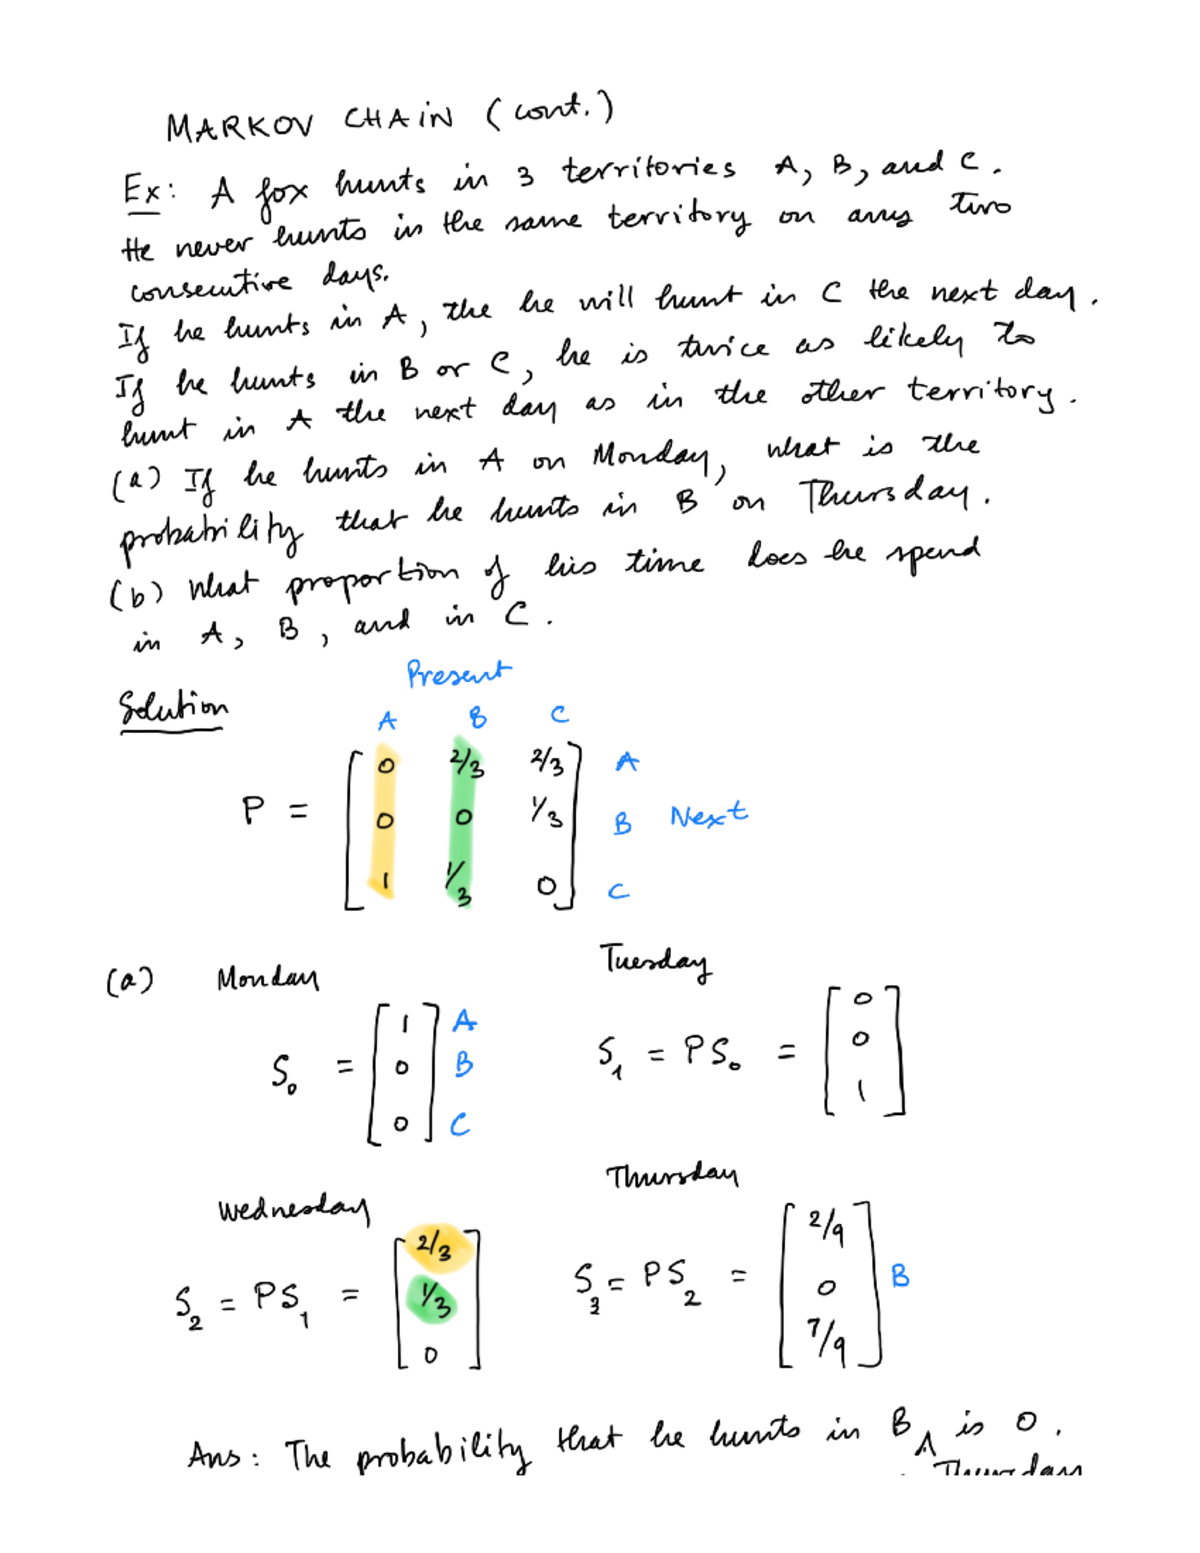 MARKOV CHAIN (cont.)
Ex: A fox hunts in 3 territories A, B, and C.
He never hunts in the same territory on any two
consecutive days.
If he hunts in A, the he will hunt in C the next day.
If he hunts in B or C, he is twice as likely to
hunt in A the next day as in the other territory.
(a) If he hunts in A on Monday, what is the
probability that he hunts in B on Thursday.
(b) What proportion of his time does he spend
in A, B, and in C.
Present
Solution
A B C
0 2/3 2/3 A
P = 0 0 1/3 B Next
1 1/3 0 C
(a) Monday Tuesday
S₀ = [1 0 0] A B C S₁ = PS₀ = [0 0 1]
Wednesday Thursday
S₂ = PS₁ = [2/3 1/3 0] S₃ = PS₂ = [2/9 0 7/9] B
Ans: The probability that he hunts in B ∧ is 0.
Thursday